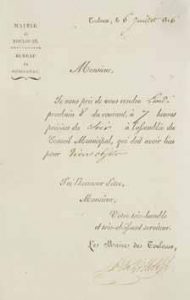 MAIRIE
DE
TOULOUSE.
BUREAU
Toulouse, le 6 juillet
Monsieur,
Je vous prie de vous rendre Lundi
prochain 8 du courant, à 7 heures
précises du Soir à l'assemblée du
Conseil Municipal, qui doit avoir lieu
pour
J'ai l'honneur d'être,
Monsieur,
Votre très-humble
et très-obéissant serviteur.
Le Maire de Toulouse,